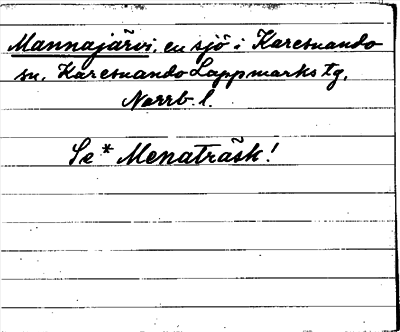 Mannajärvi, en sjö i Karesuando
sn, Karesuando Lappmarks tg,
Norrb. l.
Se * Menaträsk!